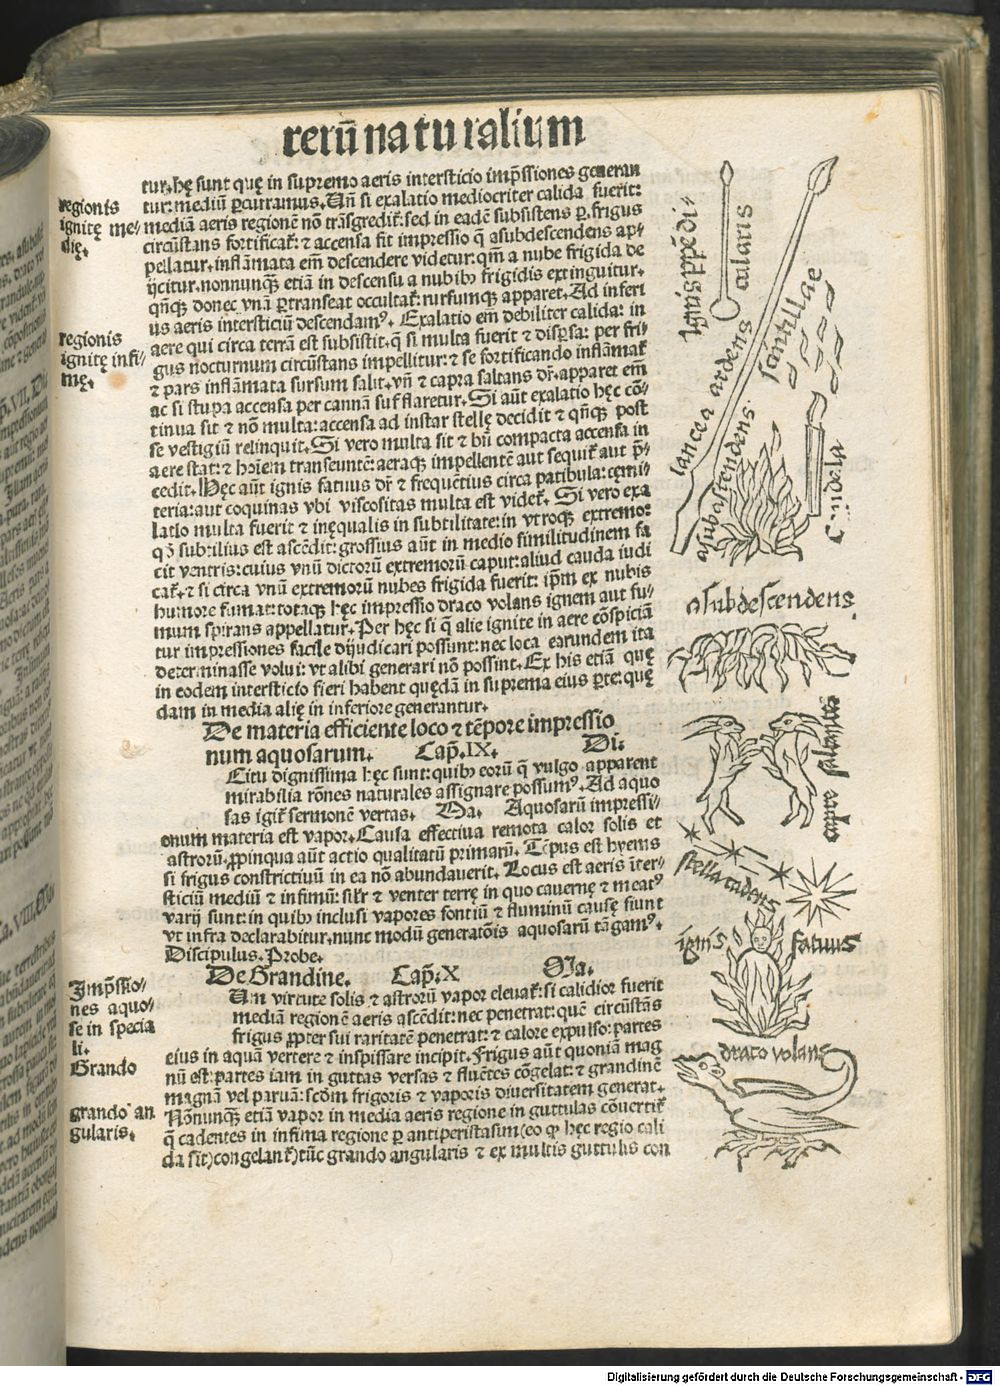 rerū naturalium
tur. hę sunt quę in supremo aeris intersticio imp̄ssiones generan
tur: mediū ꝑcurramus. Un̄ si exalatio mediocriter calida fuerit:
mediā aeris regionē nō trāsgredit᷑: sed in eadē subsistens ꝑ frigus
circūstans fortificat᷑: ⁊ accensa fit impressio q̄ asubdescendens ap-
pellatur. inflāmata em̄ descendere videtur: qm̄ a nube frigida de
ijcitur. nonnunqꝫ etiā in descensu a nubibꝰ frigidis extinguitur.
qn̄qꝫ donec vnā ꝑtranseat occultat᷑: rursumqꝫ apparet. Ad inferi
us aeris intersticiū descendamꝰ. Exalatio em̄ debiliter calida: in
aere qui circa terrā est subsistit. q̄ si multa fuerit ⁊ disꝑsa: per fri-
gus nocturnum circūstans impellitur: ⁊ se fortificando inflāmat᷑
⁊ pars inflāmata sursum salit. vn̄ ⁊ capra saltans dr̄. apparet em̄
ac si stupa accensa per cannā sufflaretur. Si aūt exalatio hęc cō-
tinua sit ⁊ nō multa: accensa ad instar stellę decidit ⁊ qn̄qꝫ post
se vestigiū relinquit. Si vero multa sit ⁊ bn̄ compacta accensa in
aere stat: ⁊ hoīem transeuntē: aeraqꝫ impellentē aut sequit᷑ aut p̄-
cedit. Hęc aūt ignis fatuus dr̄ ⁊ frequētius circa patibula: cęmi-
teria: aut coquinas vbi viscositas multa est videt᷑. Si vero exa
latio multa fuerit ⁊ inęqualis in subtilitate: in vtroqꝫ extremo:
qꝫ subtilius est ascēdit: grossius aūt in medio similitudinem fa
cit ventris: cuius vnū dictorū extremorū caput: aliud cauda iudi
cat᷑. ⁊ si circa vnū extremorū nubes frigida fuerit: ip̄m ex nubis
humore fumat: totaqꝫ hęc impressio draco volans ignem aut fu-
mum spirans appellatur. Per hęc si q̄ alie ignite in aere cōspiciā
tur impressiones facile dijudicari possunt: nec loca earundem ita
determinasse volui: vt alibi generari nō possint. Ex his etiā quę
in eodem intersticio fieri habent quędā in suprema eius ꝑte: quę
dam in media alię in inferiore generantur.
De materia efficiente loco ⁊ tēpore impressio
num aquosarum. Cap̄. IX. Di.
Citu dignissima hęc sunt: quibꝰ eorū q̄ vulgo apparent
mirabilia rōnes naturales assignare possumꝰ. Ad aquo
sas igit᷑ sermonē vertas. Ma. Aquosarū impressi-
onum materia est vapor. Causa effectiua remota calor solis et
astrorū. ꝓpinqua aūt actio qualitatū primarū. Tēpus est hyems
si frigus constrictiuū in ea nō abundauerit. Locus est aeris īter-
sticiū mediū ⁊ infimū: silr̄ ⁊ venter terrę in quo cauernę ⁊ meatꝰ
varij sunt: in quibꝰ inclusi vapores fontiū ⁊ fluminū causę fiunt
vt infra declarabitur. nunc modū generatōis aquosarū tāgamꝰ.
Discipulus. Probe.
De Grandine. Cap̄. X Ma.
Um virtute solis ⁊ astrorū vapor eleuat᷑: si calidior fuerit
mediā regionē aeris ascēdit: nec penetrat: quē circūstās
frigus ꝓpter sui raritatē penetrat: ⁊ calore expulso: partes
eius in aquā vertere ⁊ inspissare incipit. Frigus aūt quoniā mag
nū est: partes iam in guttas versas ⁊ fluētes cōgelat: ⁊ grandinē
magnā vel paruā: scdm frigoris ⁊ vaporis diuersitatem generat.
Nōnunqꝫ etiā vapor in media aeris regione in guttulas cōuertit᷑
q̄ cadentes in infima regione ꝑ antiperistasim (eo ꝙ hęc regio cali
da sit) congelant᷑) tūc grando angularis ⁊ ex multis guttulis con
regionis
ignitę me-
dię.
regionis
ignitę infi-
mę.
Imp̄ssio-
nes aquo-
se in specia
li.
Grando
grando an
gularis.
Ignis ꝑpēdi-
cularis
lancea ardens
scintillae
asubascendens
Candela
asubdescendens
capra
saltans
stella cadens
ignis fatuus
draco volans
Digitalisierung gefördert durch die Deutsche Forschungsgemeinschaft - DFG